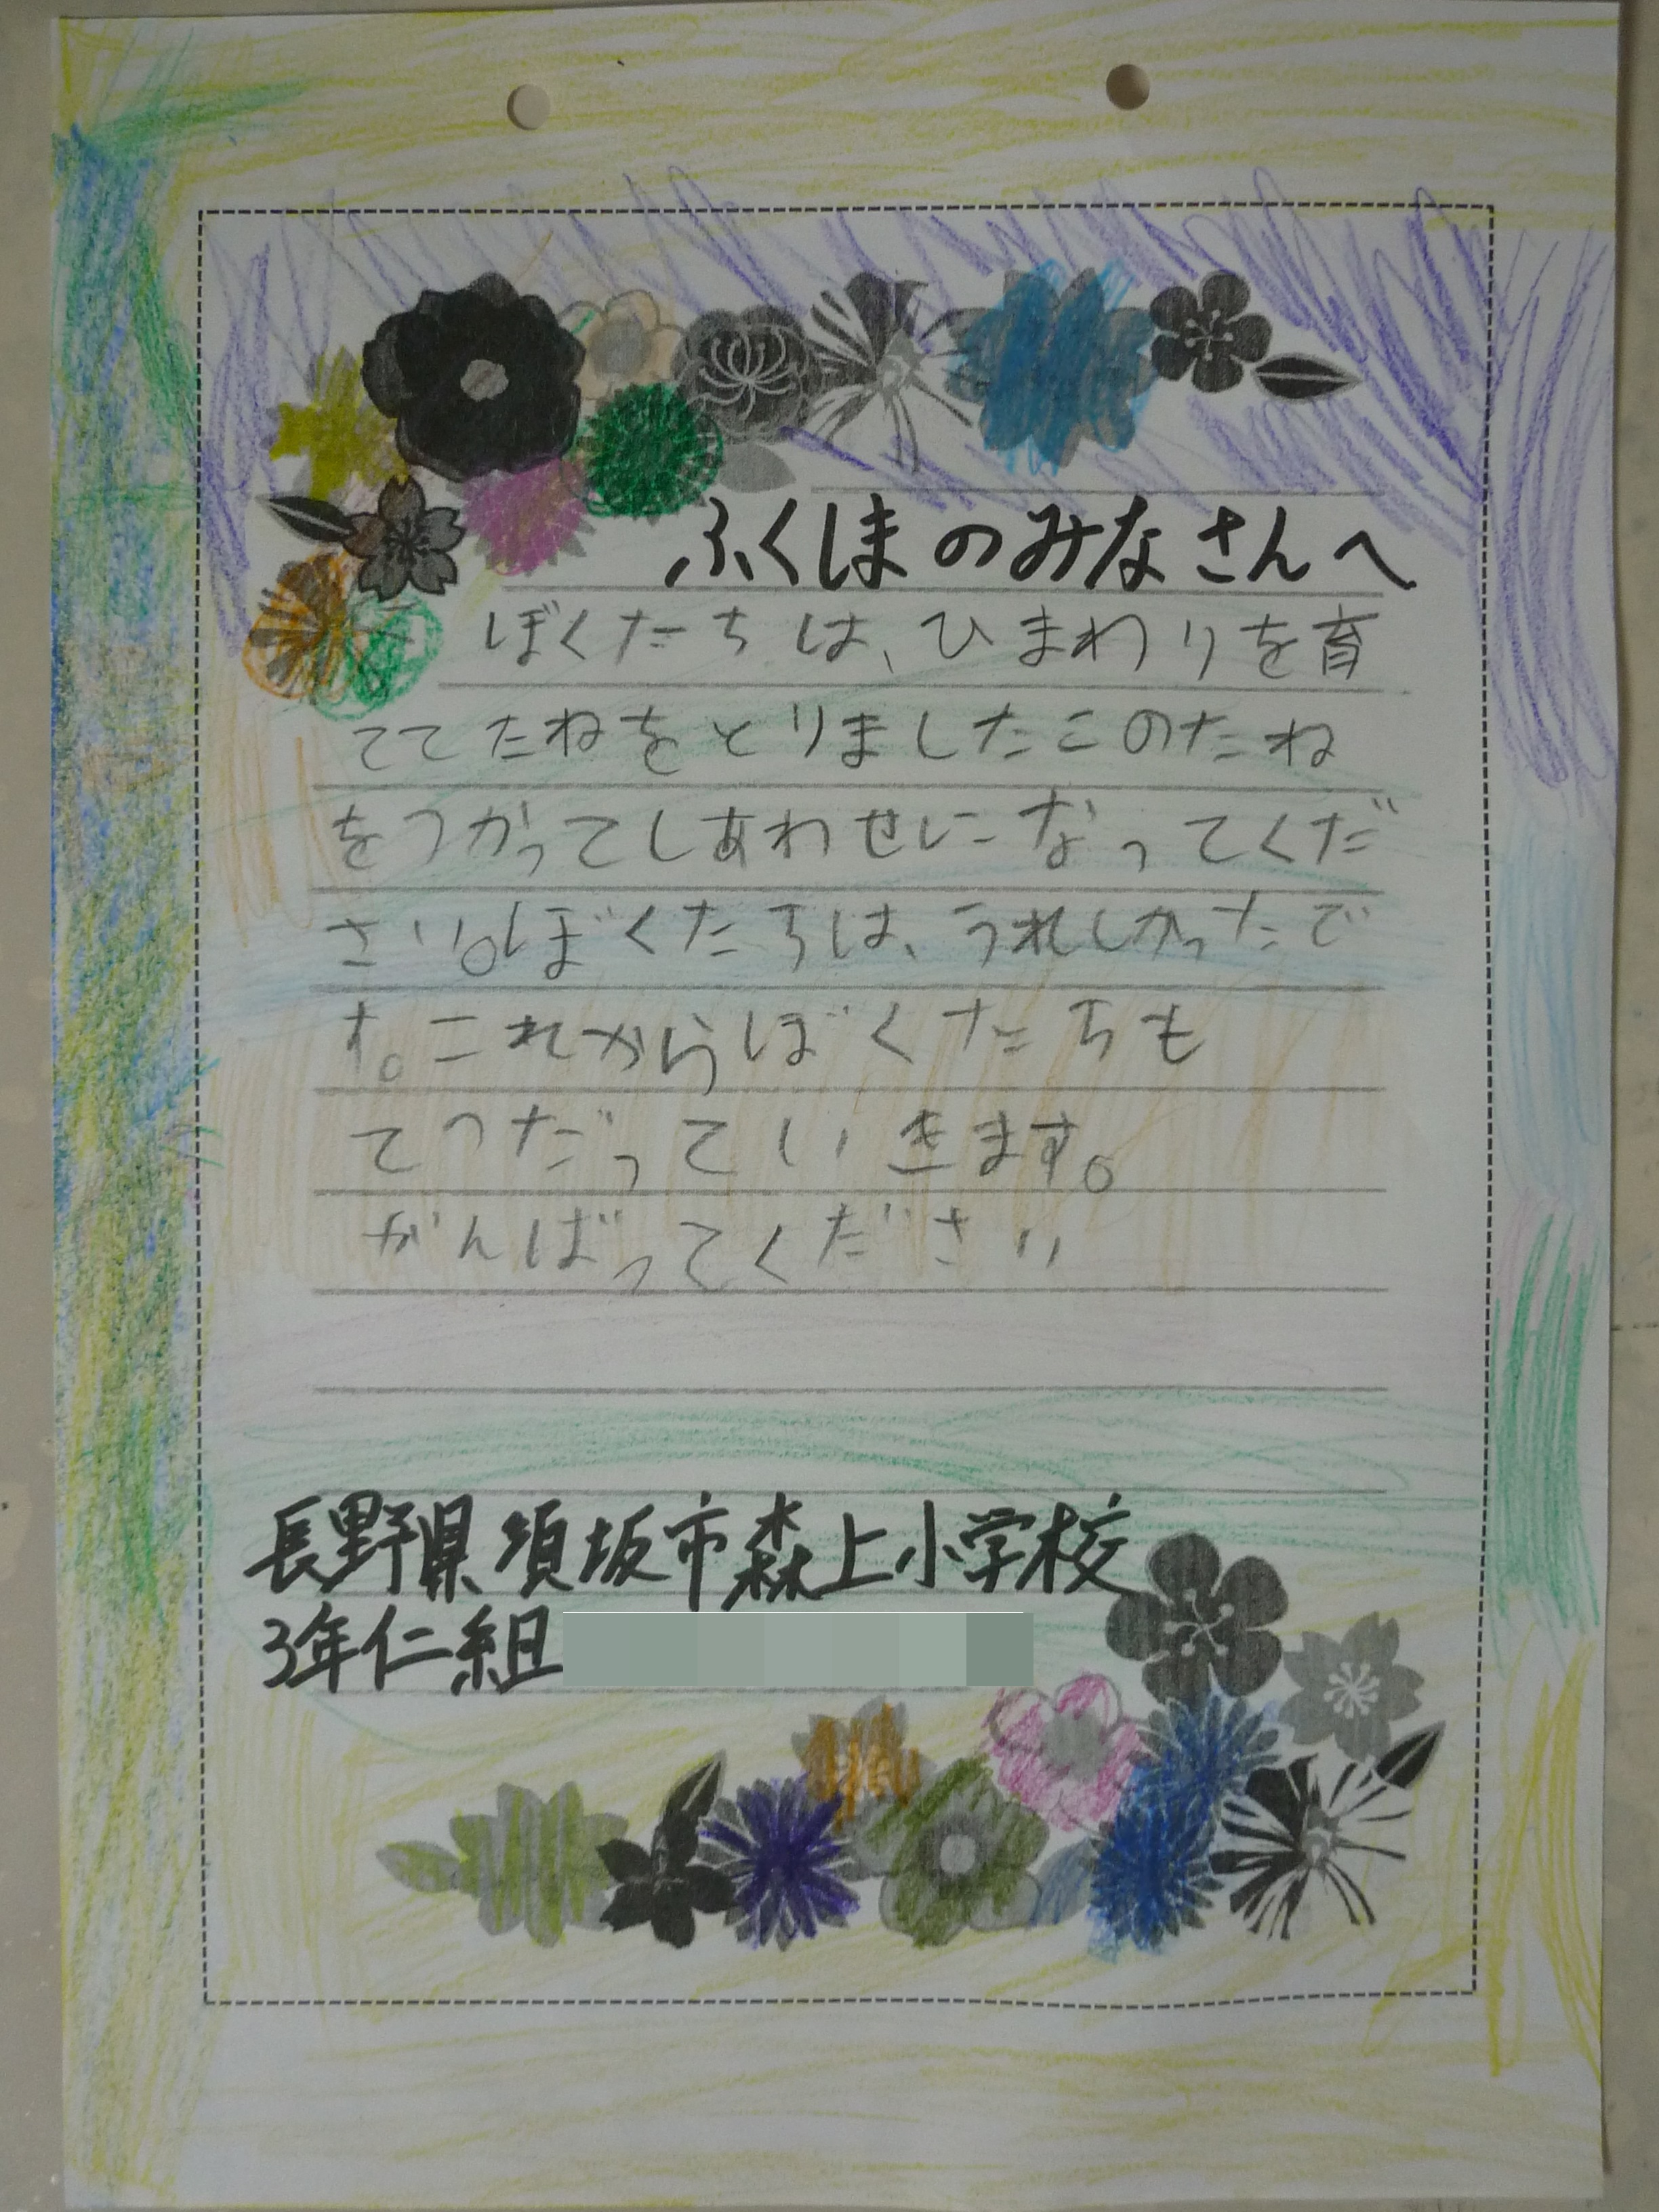 ふくしまのみなさんへ
ぼくたちは、ひまわりを育
ててたねをとりましたこのたね
をつかってしあわせになってくだ
さい。ぼくたちは、うれしかったで
す。これからぼくたちも
てつだっていきます。
がんばってください
長野県須坂市森上小学校
3年仁組